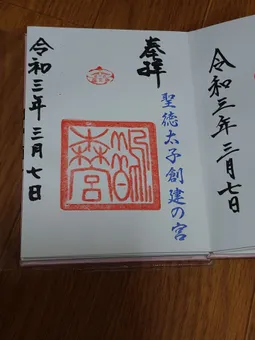 奉拝
聖徳太子創建の宮
鵲森宮
令和三年三月七日
令和三年三月七日